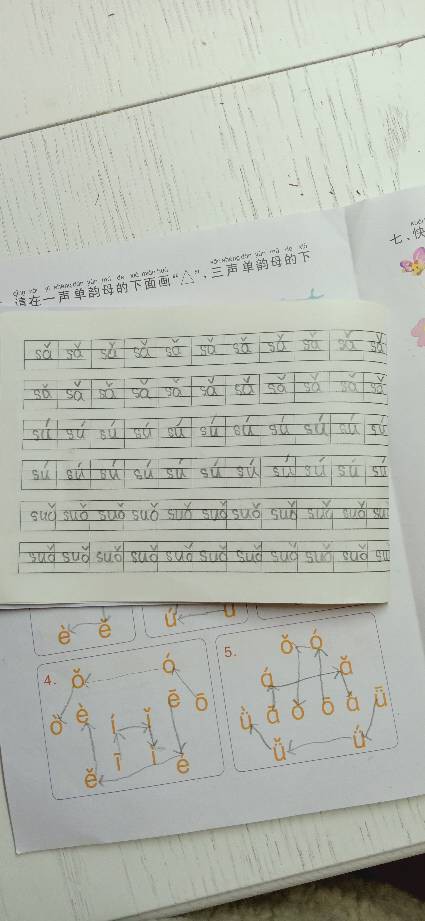 请在一声单韵母的下面画“△”，三声单韵母的下
七、快
sǎ sǎ sǎ sǎ sǎ sǎ sǎ sǎ sǎ sǎ sǎ
sǎ sǎ sǎ sǎ sǎ sǎ sǎ sǎ sǎ sǎ sǎ
sú sú sú sú sú sú sú sú sú sú sú
sú sú sú sú sú sú sú sú sú sú sú
suǒ suǒ suǒ suǒ suǒ suǒ suǒ suǒ suǒ suǒ
suǒ suǒ suǒ suǒ suǒ suǒ suǒ suǒ suǒ suǒ
è ě
4.
ǒ ó
ò è í ǐ ē ō
ě ī ì
5.
ǒ ó
á ǎ
ǜ ò ō ǖ
ǚ ǘ